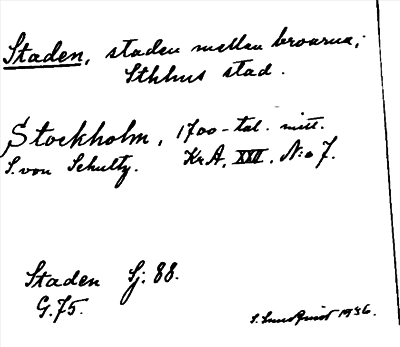 Staden, staden mellan broarna;
Sthlms stad.
Stockholm, 1700-tal. mitt.
S. von Schultz. KrA, XXII, N:o 7.
Staden Sj: 88.
G. 75.
S. Lundqvist 1936.